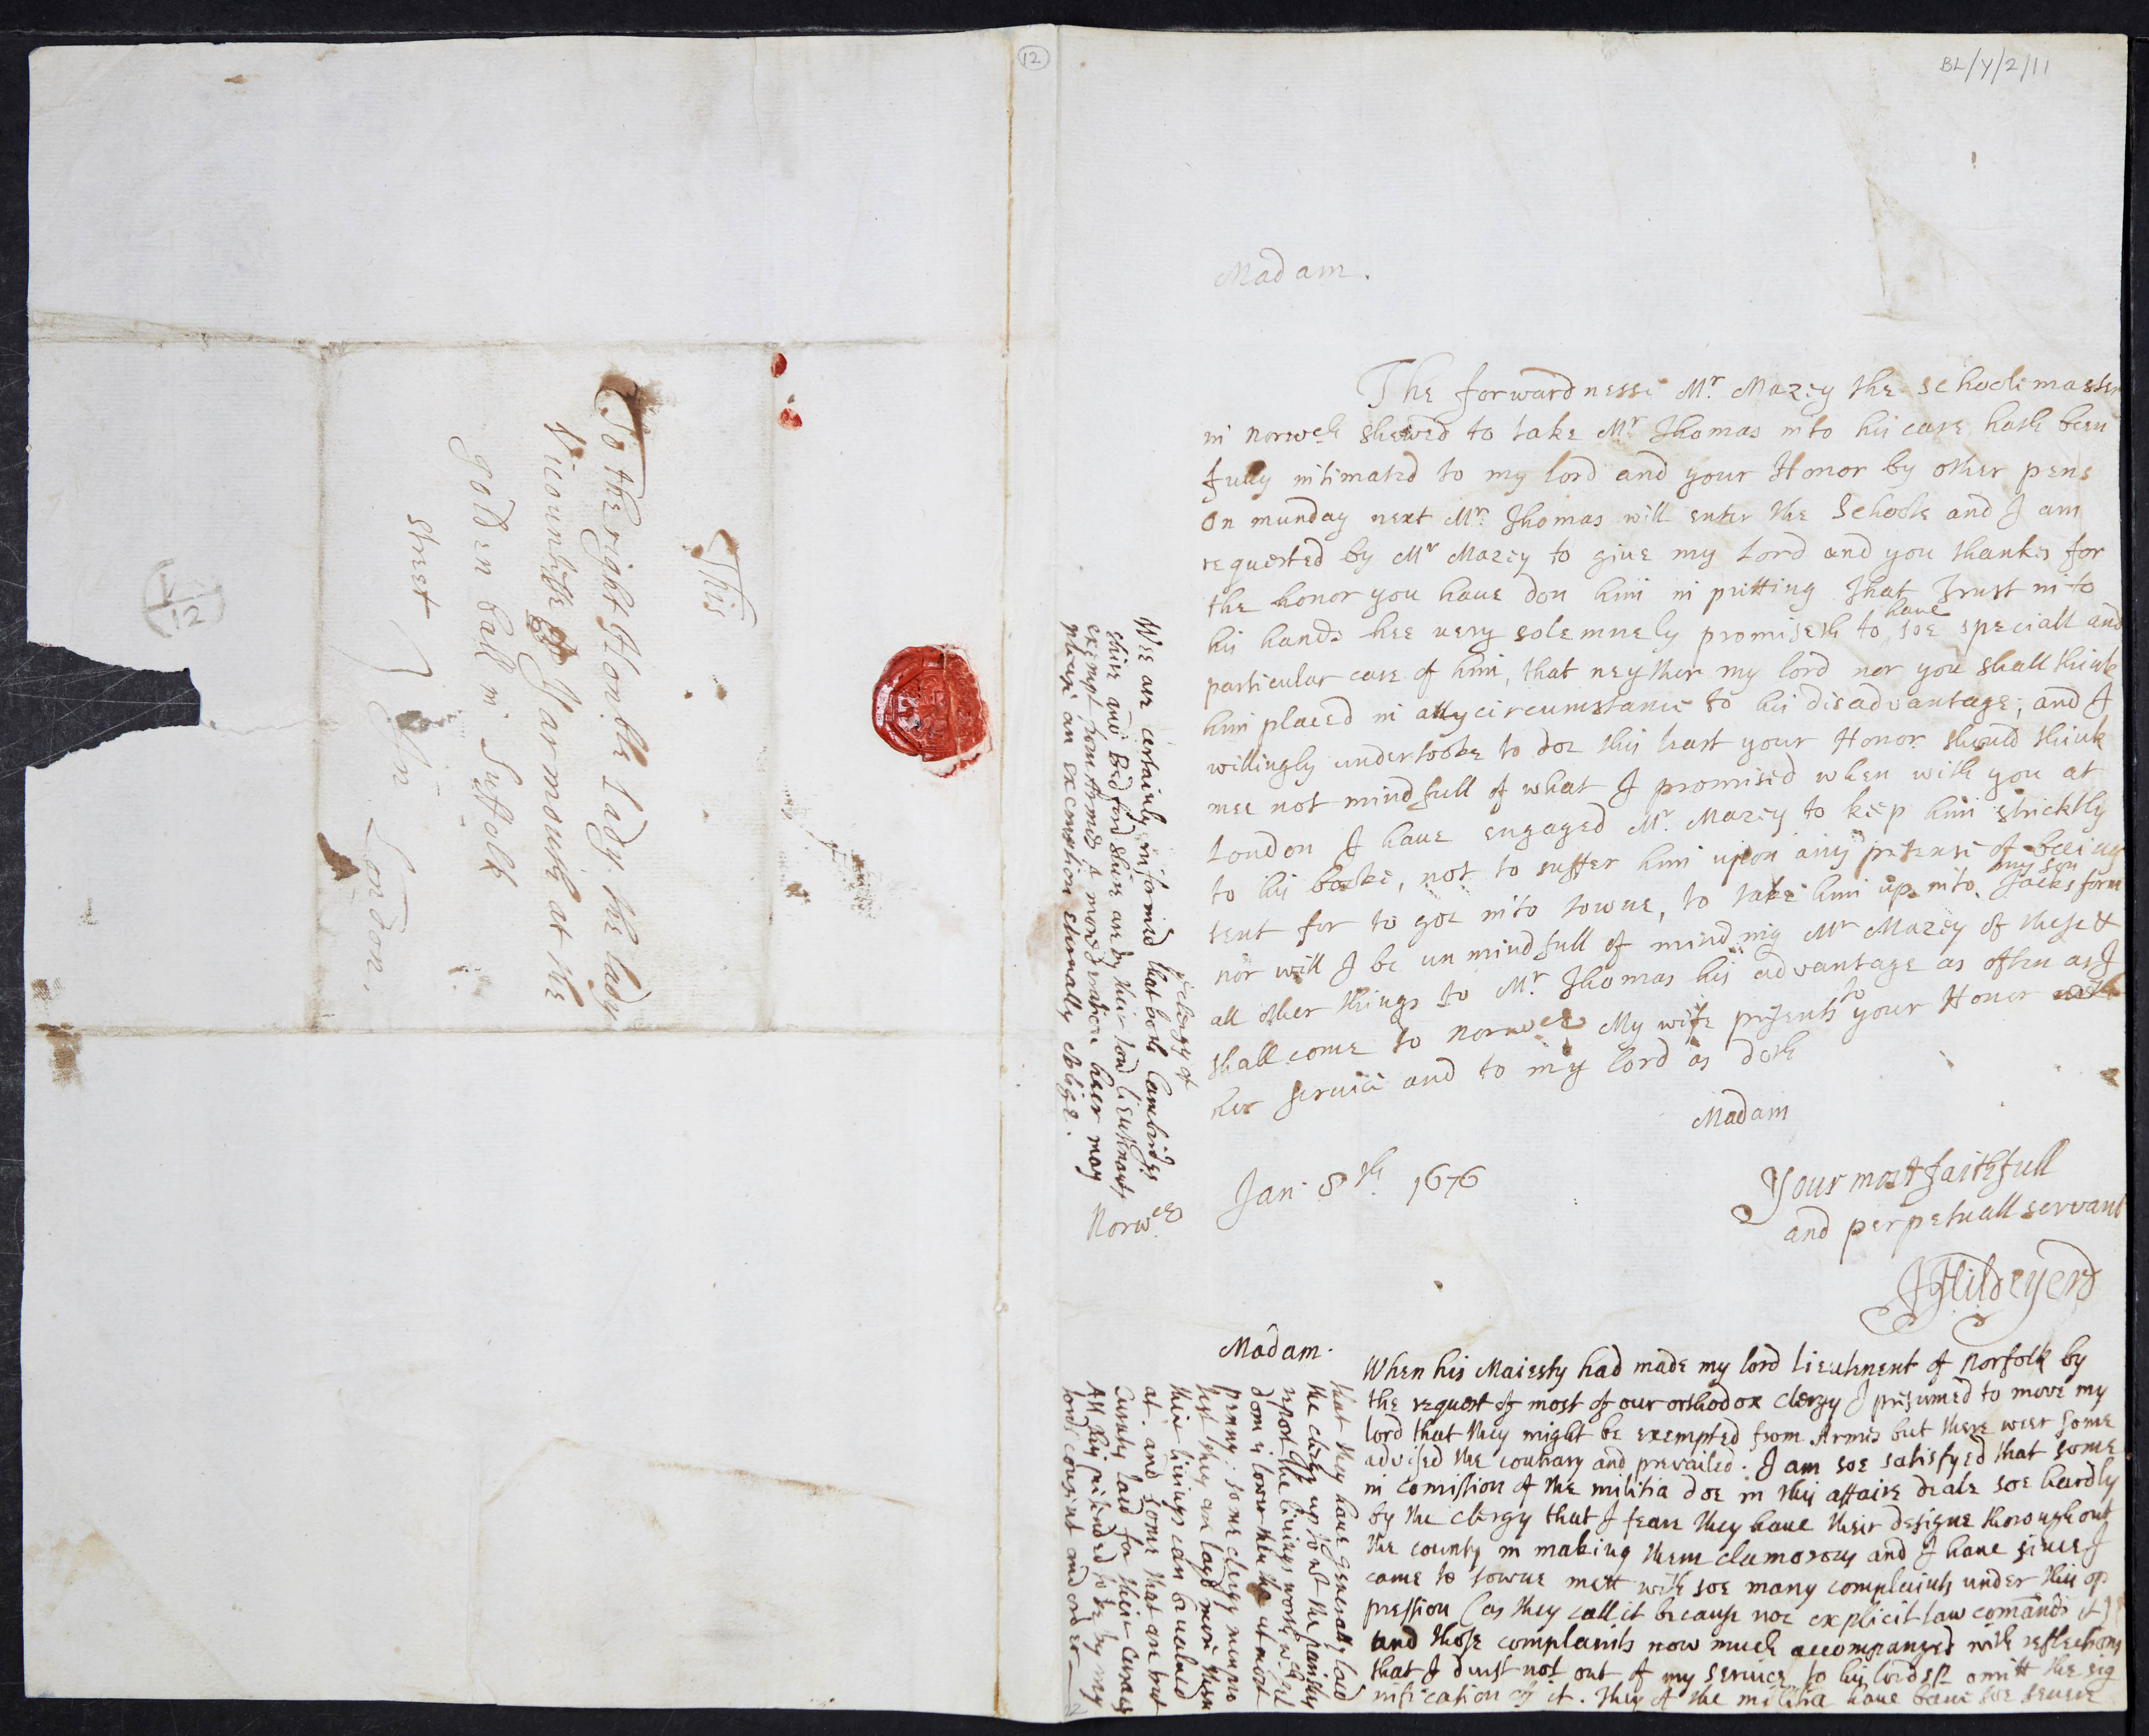 12
BL/Y/2/11
Madam.
The forwardnesse Mr. Mazey the schoolemaster
in Norwch shewed to take Mr Thomas into his care hath been
fully intimated to my lord and your Honor by other pens
On munday next Mr. Thomas will enter the Schoole and I am
requested by Mr Mazey to giue my Lord and you thankes for
the honor you haue don him in putting that trust into
his hands hee uery solemnely promiseth to haue soe speciall and
particular care of him, that neyther my lord nor you shall think
him placed in any circumstance to his disadvantage; and I
willingly undertooke to doe this least your Honor should think
mee not mindfull of what I promised when with you at
London I haue engaged Mr. Mazey to keep him stricktly
to his booke, not to suffer him upon any pretense of beeing
sent for to goe into towne, to take him up into my son Jacks form
nor will I be unmindfull of minding Mr Mazey of these &
all other things to Mr. Thomas his advantage as often as I
shall come to Norwch My wife presents to your Honor
her seruice and to my Lord as doth
Madam
Your most faithfull
and perpetuall servant
JHildeyerd
Jan. 8th. 1676
Norwch.
Madam.
When his Maiesty had made my lord lieutenent of Norfolk by
the request of most of our orthodox clergy I presumed to move my
lord that they might be exempted from Armes but there weer some
advised the contrary and prevailed. I am soe satisfyed that some
in comission of the militia doe in this affaire deale soe hardly
by the clergy that I feare they haue their designe thoroughout
the county in making them clamorous and I haue since I
came to towne mett with soe many complaints under this op
pression (as they call it because noe explicit law comands it)
and those complaints now much accompanyed with reflections
that I durst not out of my seruice to his lordsp omitt the sig
nification of it. They of the militia haue bene soe seuere
that they haue generally laid
the clergy up to wt the parishes
report the livings worth wch sel
dom is lower then the utmost
penny: some clergy men pro
test they are layd more then
their livings can be valued
at. and some that are but
Curates laid for their Curacys
All this pretended to be by my
lords consent and order
Wee are certainly informed that both ye clergy of Cambridge
shire and Bedford shire are by their lord lieutenants
exempt from Armes a moderation heer may
please an exemption eternally oblige.
12
This
To the right Honble Lady. the lady
Vicountesse Yarmouth at the
golden ball in Suffolk
street
In London.
V
12